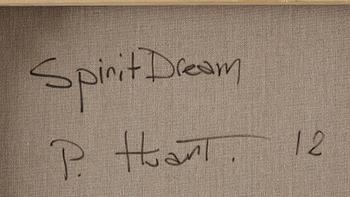 Spirit Dream
P. Huart. 12